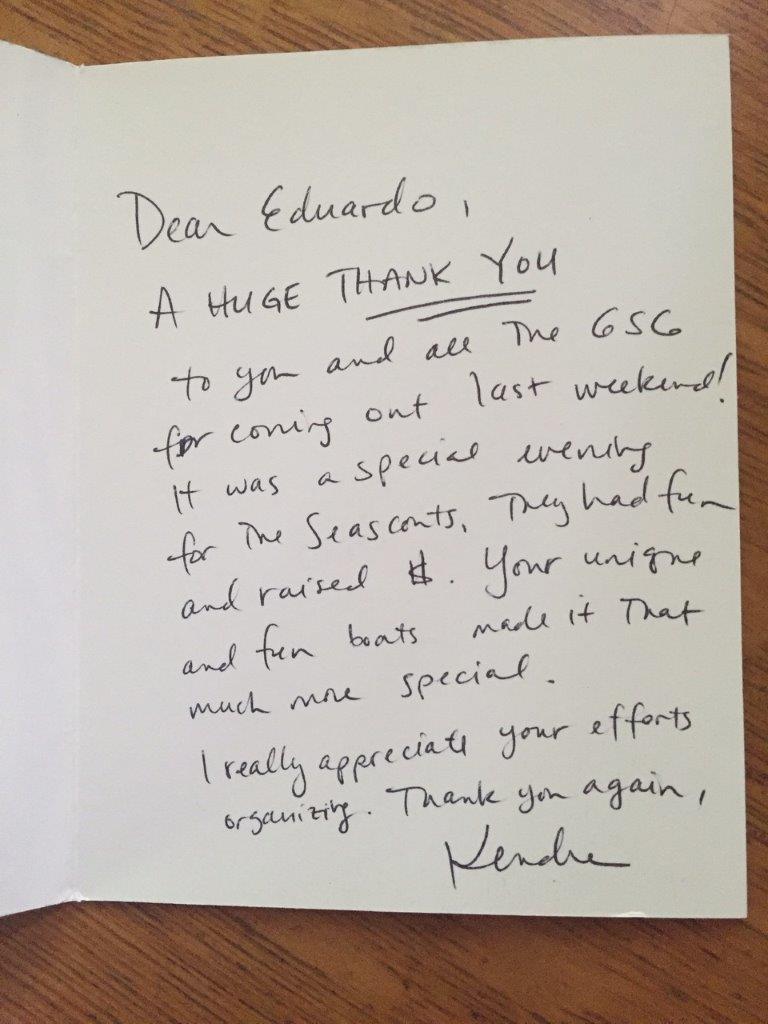 Dear Eduardo,
A HUGE THANK YOU
to you and all The GSG
for coming out last weekend!
It was a special evening
for The Seascouts. They had fun
and raised $. Your unique
and fun boats made it That
much more special.
I really appreciate your efforts
organizing. Thank you again,
Kendra